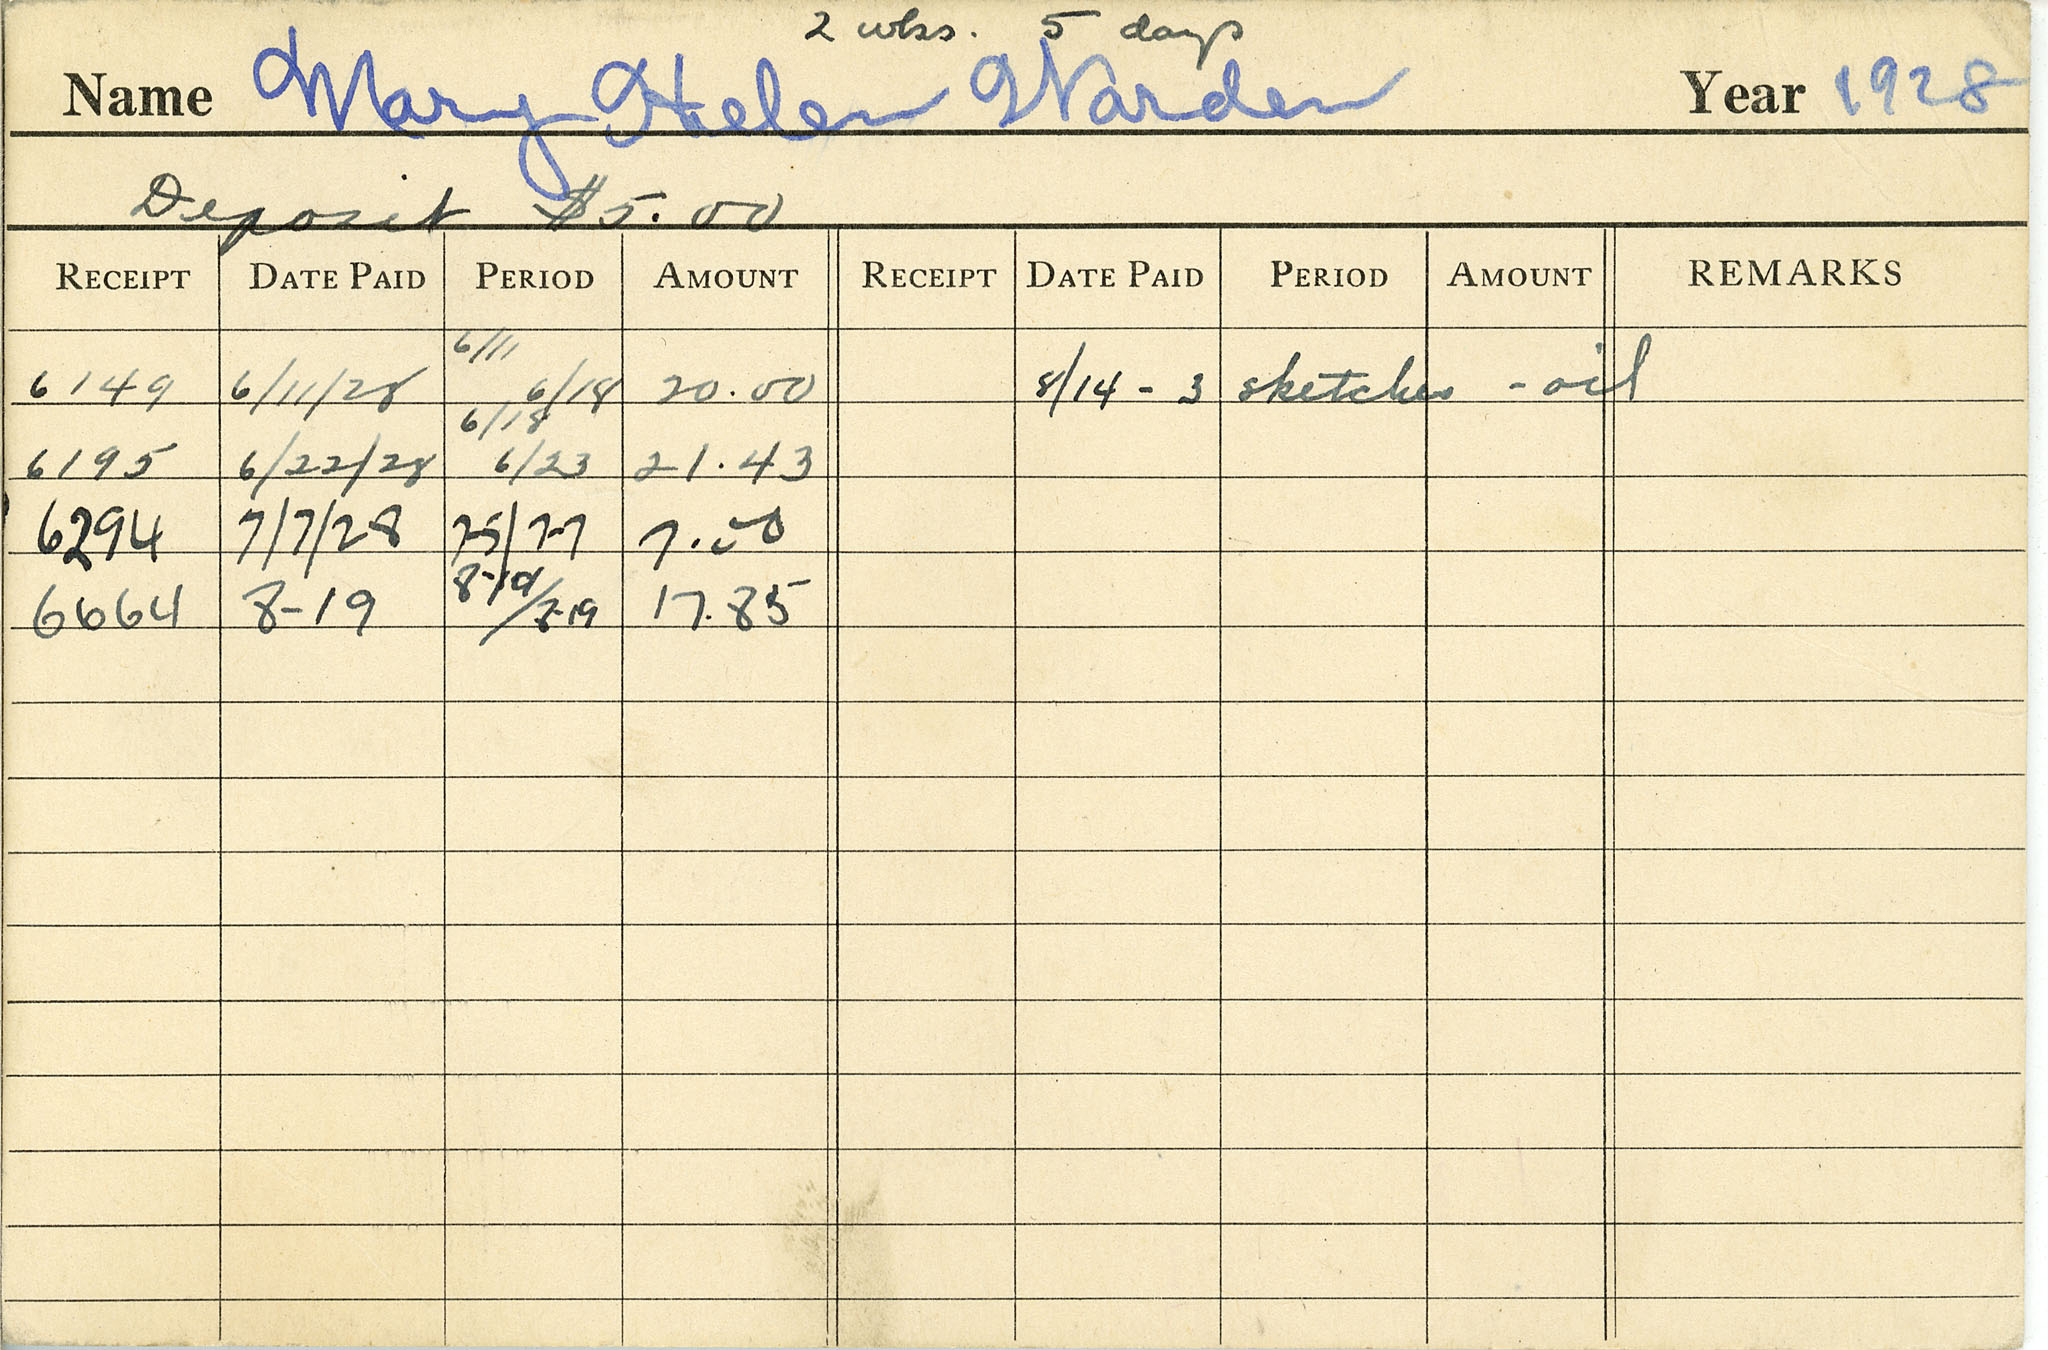 2 wks. 5 days
Name Mary Helen Warden Year 1928
Deposit $5.00
RECEIPT DATE PAID PERIOD AMOUNT RECEIPT DATE PAID PERIOD AMOUNT REMARKS
6/11
6149 6/11/28 6/18 20.00 8/14 - 3 sketches - oil
6/18
6195 6/22/28 6/23 21.43
6294 7/7/28 7-5/7-7 7.50
8-19
6664 8-19 17.85